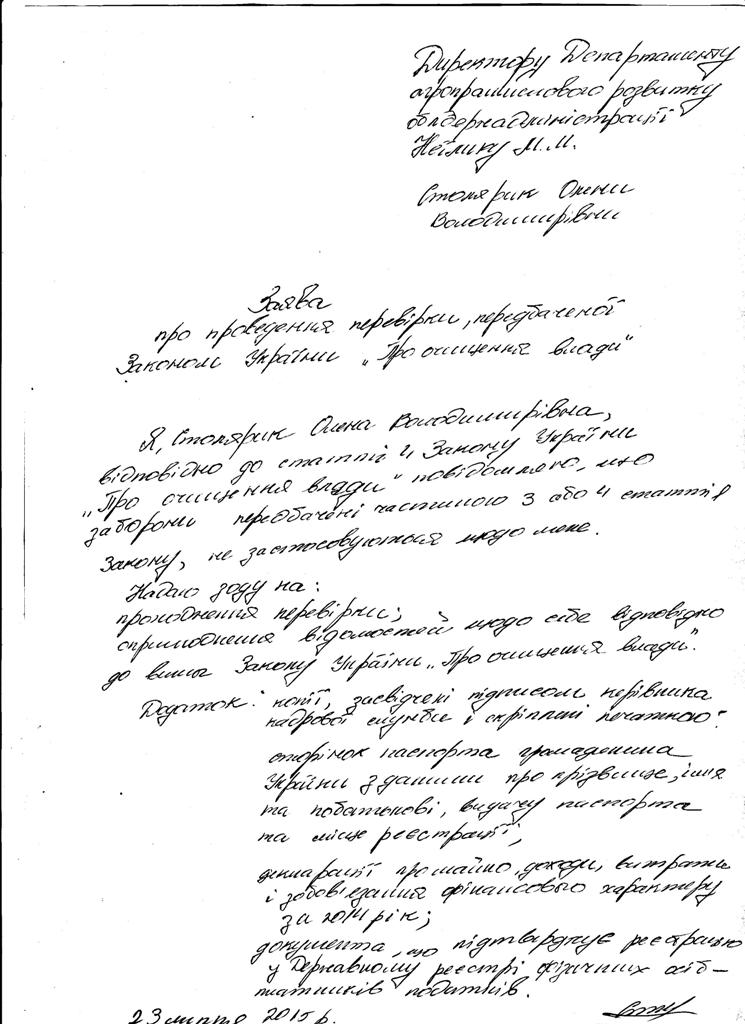 Директору Департаменту
агропромислового розвитку
облдержадміністрації
М.М.
Столярик Олени
Володимирівни
Заява
про проведення перевірки, передбаченої
Законом України „Про очищення влади"
Я, Столярик Олена Володимирівна,
відповідно до статті 4 Закону України
„Про очищення влади" повідомляю, що
заборони передбачені частиною 3 або 4 статті 1
Закону, не застосовуються щодо мене.
Надаю згоду на:
проходження перевірки;
оприлюднення відомостей щодо себе відповідно
до вимог Закону України „Про очищення влади".
Додаток: копії, засвідчені підписом керівника
кадрової служби і скріплені печаткою:
сторінок паспорта громадянина
України з даними про прізвище, ім'я
та по батькові, видачу паспорта
та місце реєстрації,
декларації про майно, доходи, витрати
і зобов'язання фінансового характеру
за 2014 рік;
документа, що підтверджує реєстрацію
у Державному реєстрі фізичних осіб-
платників податків.
23 лютого 2015 р.